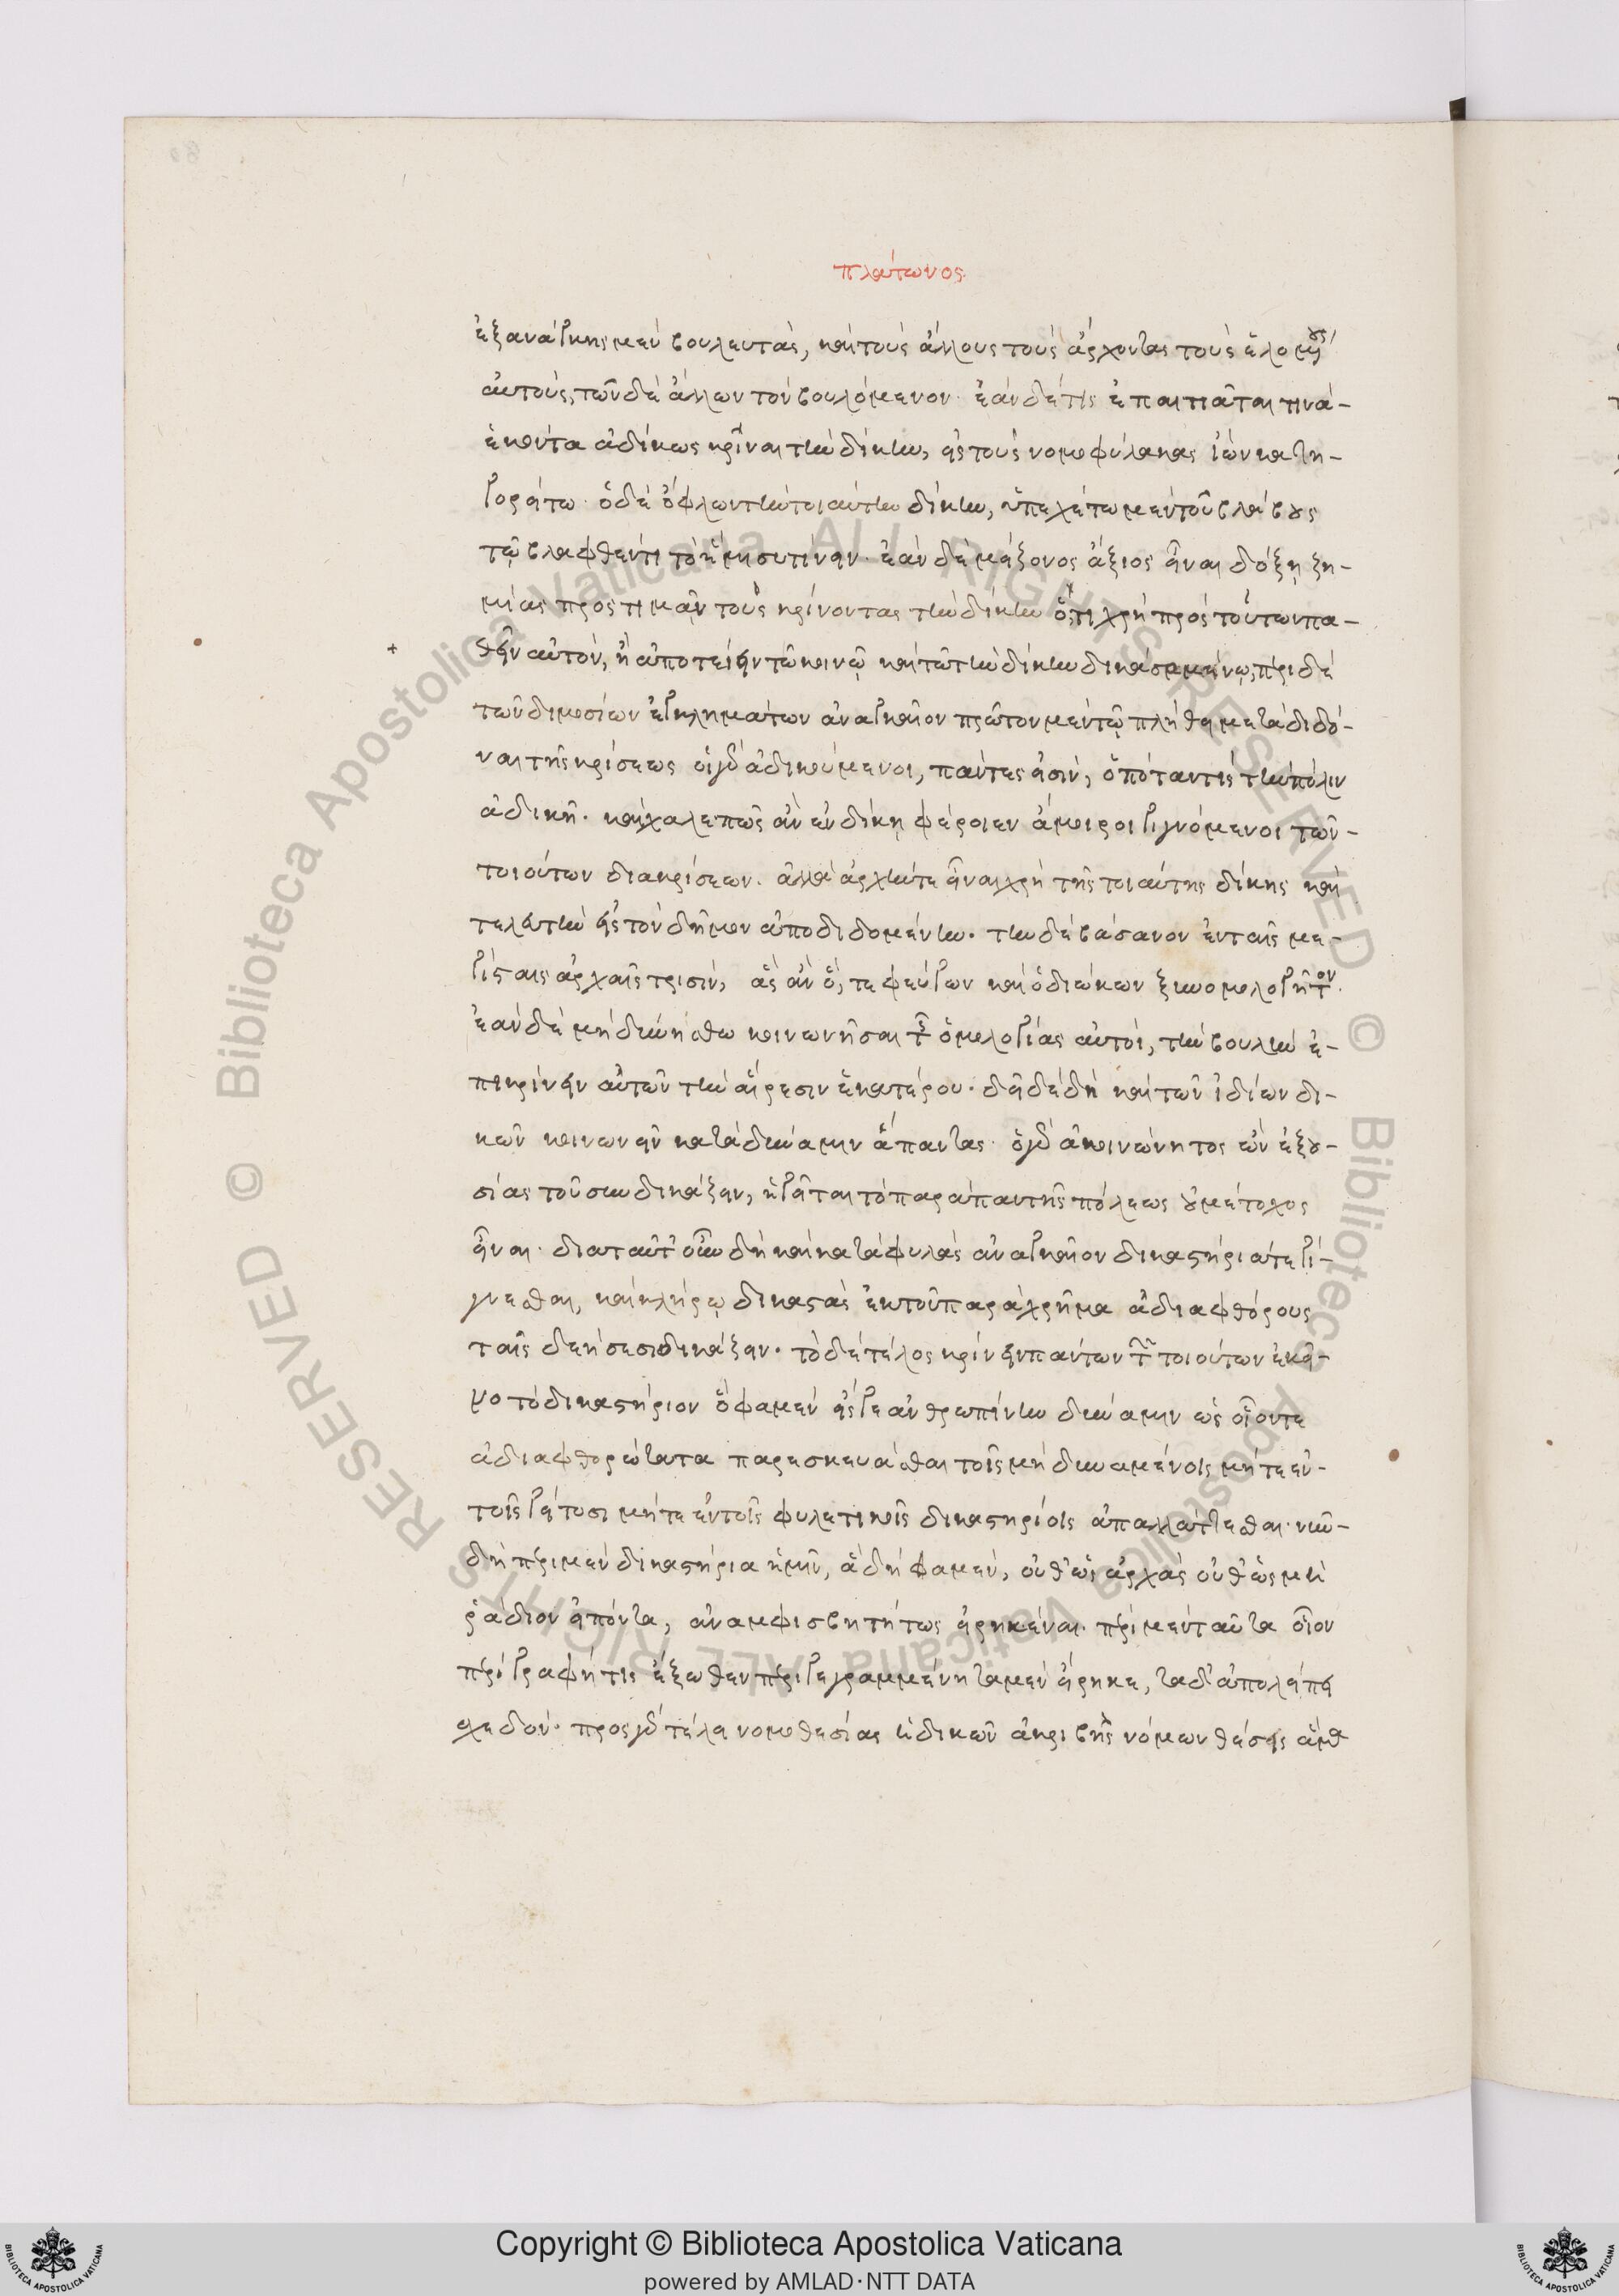 πλάτωνος.
ἐξανάγκης μὲν βουλευτὰς, καὶ τοὺς ἄλλους τοὺς ἄρχοντας τοὺς ἑλομένους
αὐτούς, τῶν δὲ ἄλλων τὸν βουλόμενον. ἐὰν δέ τις ἐπαιτιᾶται τινά-
ἑκόντα ἀδίκως κρῖναι τὴν δίκην, εἰς τοὺς νομοφύλακας ἰὼν κατη-
γορείτω. ὁ δὲ ὀφλὼν τὴν τοιαύτην δίκην, ὑπεχέτω μὲν τοῦ βλάβους
τῷ βλαφθέντι τὸ ἥμισυ τίνειν. ἐὰν δὲ μείζονος ἄξιος εἶναι δόξῃ ζη-
μίας προςτιμᾷν τοὺς κρίνοντας τὴν δίκην ὅ,τι χρὴ πρὸς τούτων πα-
θεῖν αὐτὸν, ἢ ἀποτείειν τῶ κοινῷ καὶ τῶ τὴν δίκην δικασαμένῳ, περὶ δὲ
τῶν δημοσίων ἐγκλημάτων ἀναγκαῖον πρῶτον μὲν τῷ πλήθει μεταδιδό-
ναι τῆς κρίσεως οἱ γὰρ ἀδικούμενοι, πάντες εἰσὶν, ὁπόταν τις τὴν πόλιν
ἀδικῆ. καὶ χαλεπῶς ἂν ἐν δίκῃ φέροιεν ἄμοιροι γιγνόμενοι τῶν-
τοιούτων διακρίσεων. ἀλλὰ ἀρχήν τε εἶναι χρὴ τῆς τοιαύτης δίκης καὶ
τελευτὴν εἰς τὸν δῆμον ἀποδιδομένην. τὴν δὲ βάσανον ἐν ταῖς με-
γίσταις ἀρχαῖς τρισὶν, ἃς ἂν ὅ, τε φεύγων καὶ ὁ διώκων ξυνομολογῆτον.
ἐὰν δὲ μὴ δύνησθον κοινωνῆσαι τῆς ὁμολογίας αὐτοὶ, τὴν βουλὴν ἐ-
πικρίνειν αὐτῶν τὴν αἵρεσιν ἑκατέρου. δεῖ δὲ δὴ καὶ τῶν ἰδίων δι-
κῶν κοινωνεῖν κατὰ δύναμιν ἅπαντας. ὁ γὰρ ἀκοινώνητος ὢν ἐξου-
σίας τοῦ συνδικάζειν, ἡγεῖται τὸ παράπαν τῆς πόλεως οὐ μέτοχος
εἶναι. διὰ ταῦτ᾽ οὖν δὴ καὶ κατὰ φυλὰς ἀναγκαῖον δικαστήριά τε γί-
γνεσθαι, καὶ κλήρῳ δικαστὰς ἐκ τοῦ παραχρῆμα ἀδιαφθόρους
ταῖς δεήσεσι δικάζειν. τὸ δὲ τέλος κρίνειν πάντων τῶν τοιούτων ἐκεῖ-
νο τὸ δικαστήριον ὅ φαμεν εἴς γε ἀνθρωπίνην δύναμιν ὡς οἷόν τε
ἀδιαφθορώτατα παρεσκευάσθαι τοῖς μὴ δυναμένοις μήτε ἐν-
τοῖς γείτοσι μήτε ἐν τοῖς φυλετικοῖς δικαστηρίοις ἀπαλλάττεσθαι. νῦν-
δὴ περὶ μὲν δικαστήρια ἡμῖν, ἃ δή φαμεν, οὔθ᾽ ὡς ἀρχὰς οὔθ᾽ ὡς μὴ
ῥάδιον εἰπόντα, ἀναμφισβητήτως εἰρηκέναι. περὶ μὲν ταῦτα οἷον
περιγραφή τις ἔξωθεν περιγεγραμμένη τὰ μὲν εἴρηκε, τὰ δ᾽ ἀπολείπει
σχεδόν. πρὸς γὰρ τέλει νομοθεσίας ἡ δικῶν ἀκριβὴς νόμων θέσις ἅμα